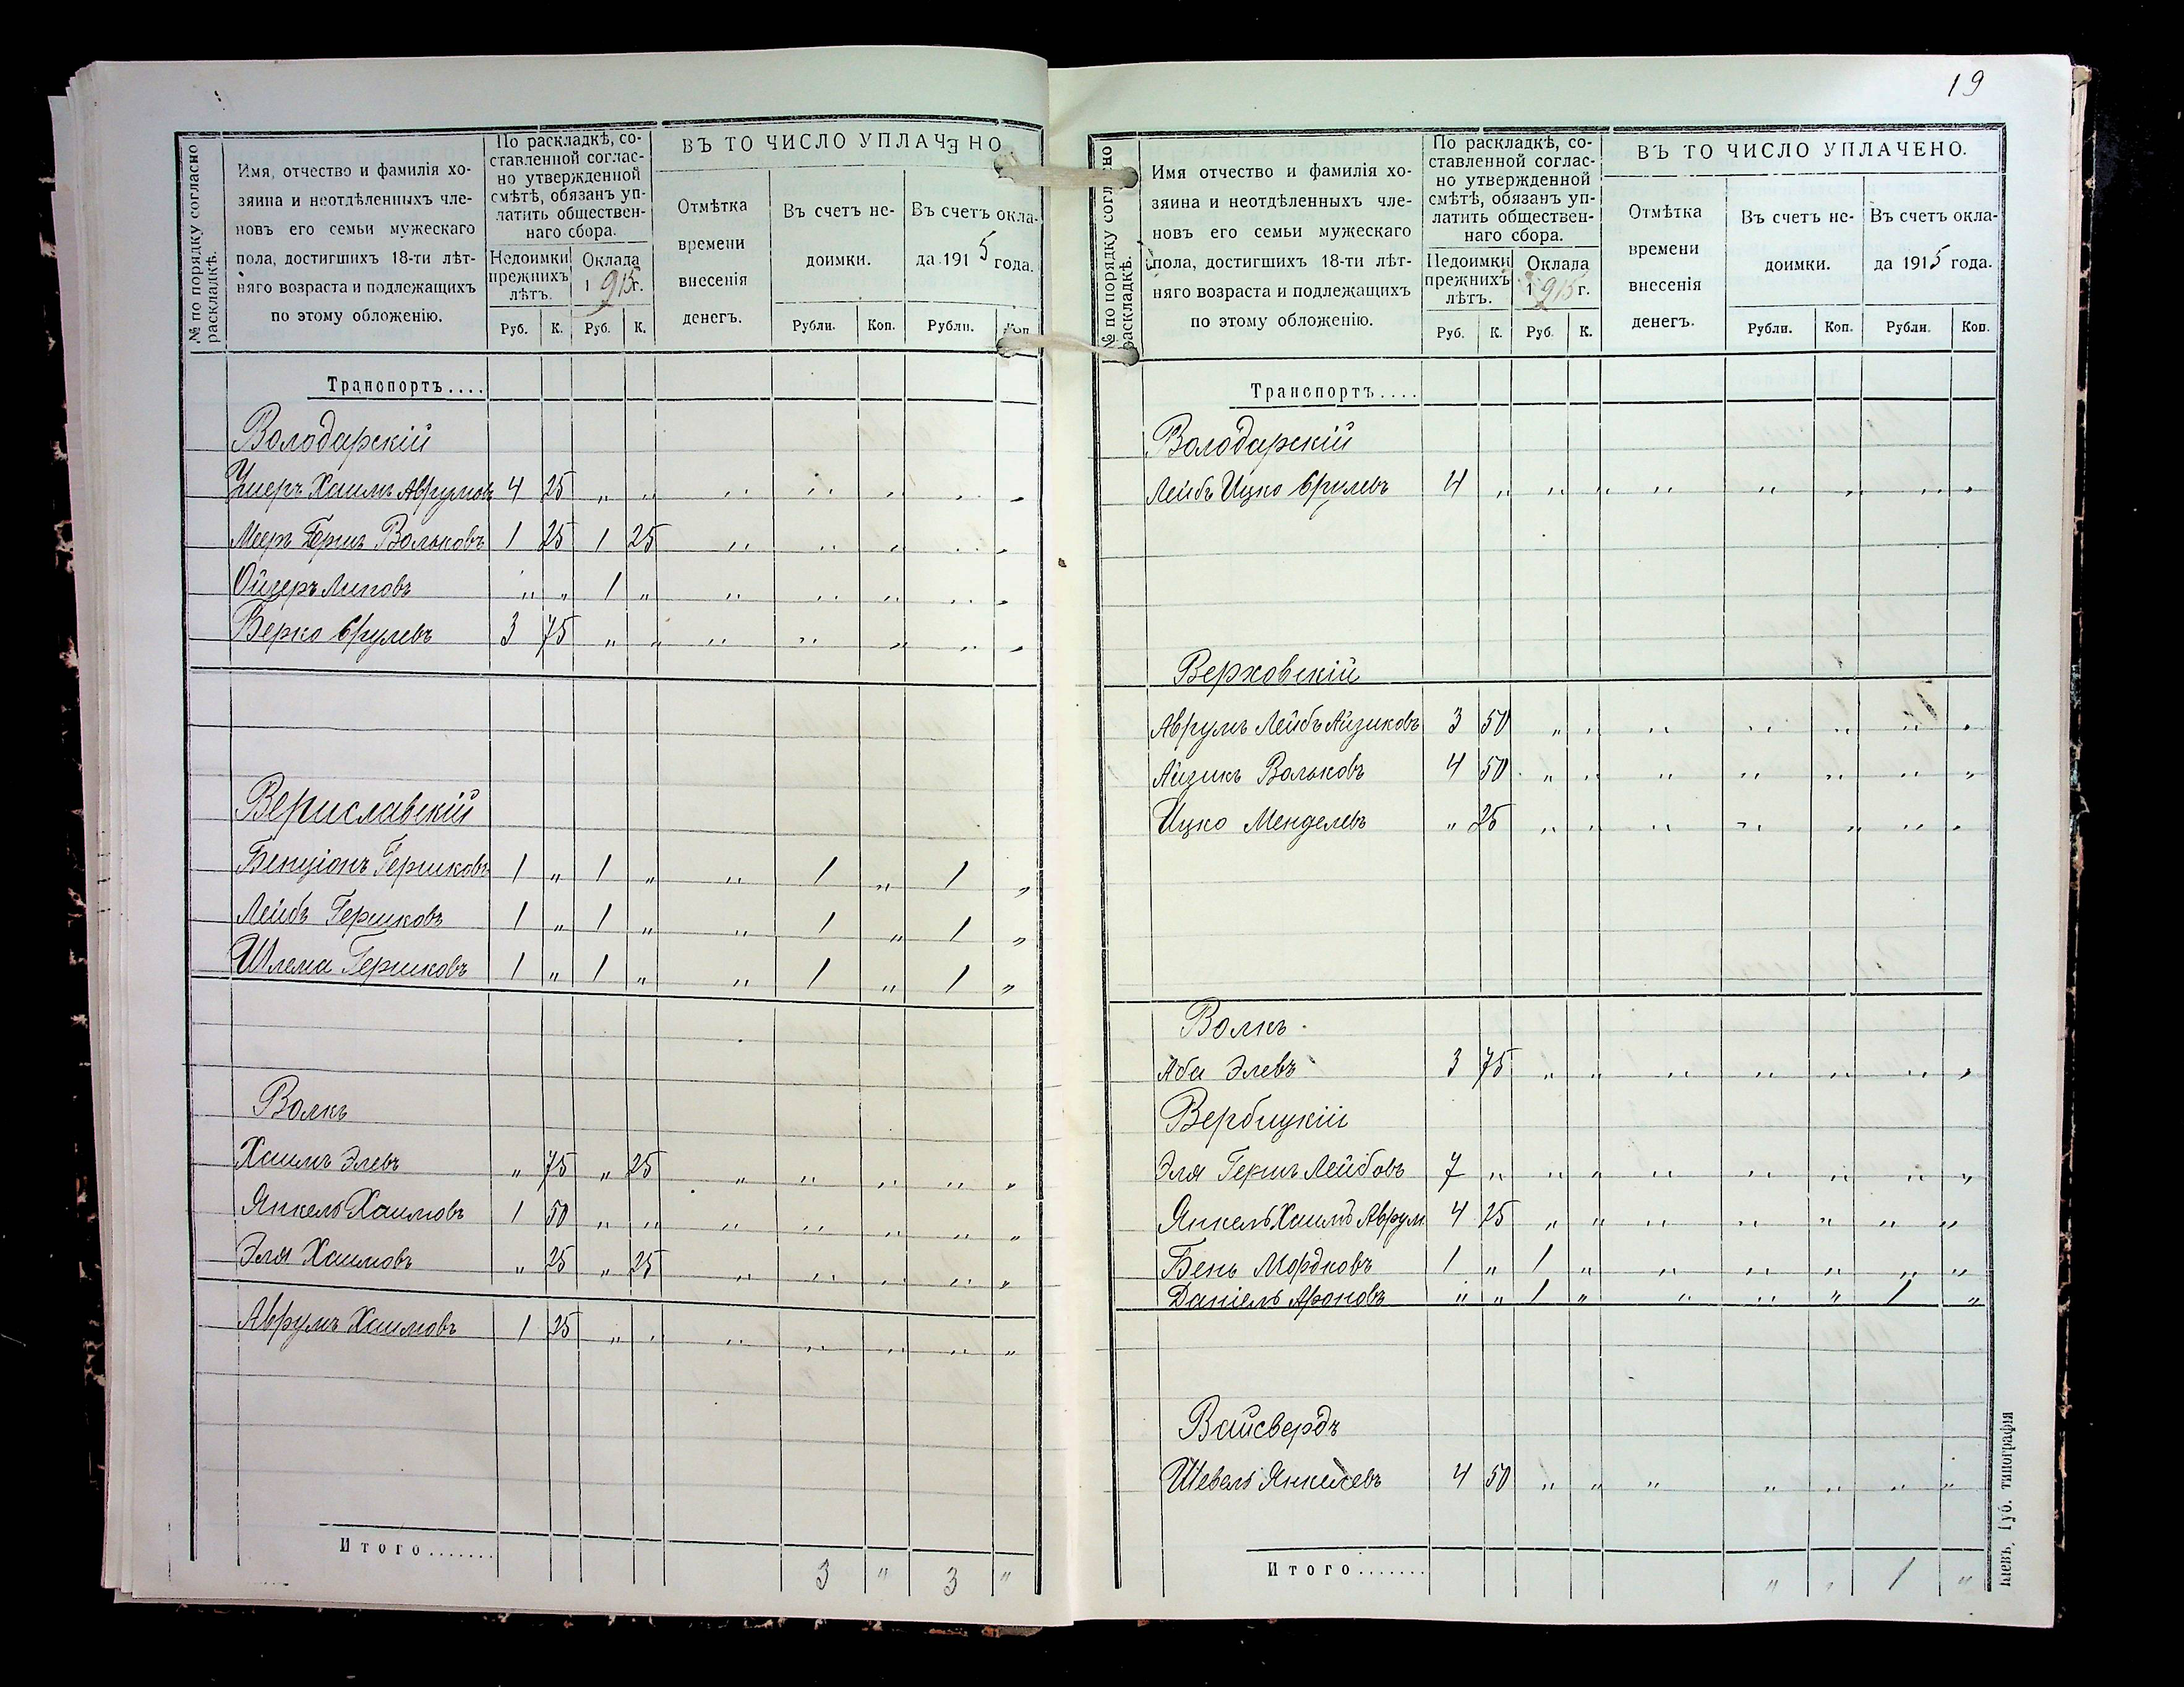 19
№ по порядку согласно раскладкѣ.
Имя, отчество и фамилія хо-
зяина и неотдѣленныхъ чле-
новъ его семьи мужескаго
пола, достигшихъ 18-ти лѣт-
няго возраста и подлежащихъ
по этому обложенію.
По раскладкѣ, со-
ставленной соглас-
но утвержденной
смѣтѣ, обязанъ уп-
латить обществен-
наго сбора.
Недоимки прежнихъ лѣтъ.
Оклада 1915г.
ВЪ ТО ЧИСЛО УПЛАЧЕНО.
Отмѣтка
времени
внесенія
денегъ.
Въ счетъ не-
доимки.
Въ счетъ окла-
да 1915 года.
Руб. К. Руб. К. Рубли. Коп. Рубли. Коп.
Транспортъ....
Володарскій
Умеръ Хаимъ Аврумовъ 4 25 " " " " " " "
Мееръ Гершъ Вольковъ 1 25 1 25 " " " " "
Ойзеръ Липовъ " " 1 " " " " " "
Берко Срулевъ 3 75 " " " " " " "
Вериславскій
Бенціонъ Гершковъ 1 " 1 " " 1 " 1 "
Лейбъ Гершковъ 1 " 1 " " 1 " 1 "
Шлема Гершковъ 1 " 1 " " 1 " 1 "
Волкъ
Хаимъ Элевъ " 75 " 25 " " " " "
Янкель Хаимовъ 1 50 " " " " " " "
Эля Хаимовъ " 25 " 25 " " " " "
Аврумъ Хаимовъ 1 25 " " " " " " "
Итого....... 3 " 3 "
№ по порядку согласно раскладкѣ.
Имя отчество и фамилія хо-
зяина и неотдѣленныхъ чле-
новъ его семьи мужескаго
пола, достигшихъ 18-ти лѣт-
няго возраста и подлежащихъ
по этому обложенію.
По раскладкѣ, со-
ставленной соглас-
но утвержденной
смѣтѣ, обязанъ уп-
латить обществен-
наго сбора.
Недоимки прежнихъ лѣтъ.
Оклада 1915 г.
ВЪ ТО ЧИСЛО УПЛАЧЕНО.
Отмѣтка
времени
внесенія
денегъ.
Въ счетъ не-
доимки.
Въ счетъ окла-
да 1915 года.
Руб. К. Руб. К. Рубли. Коп. Рубли. Коп.
Транспортъ....
Володарскій
Лейбъ Ицко Срулевъ 4 " " " " " " " "
Верховскій
Аврумъ Лейбъ Айзиковъ 3 50 " " " " " " "
Айзикъ Вольковъ 4 50 " " " " " " "
Ицко Менделевъ " 25 " " " " " " "
Волкъ
Аба Элевъ 3 75 " " " " " " "
Вербицкій
Эля Гершъ Лейбовъ 7 " " " " " " " "
Янкель Хаимъ Аврум 4 25 " " " " " " "
Бень Мордковъ 1 " 1 " " " " " "
Даніель Ароновъ " " 1 " " " " 1 "
Вайсвердъ
Шевель Янкелевъ 4 50 " " " " " " "
Итого....... " " 1 "
Кіевъ, Губ. типографія